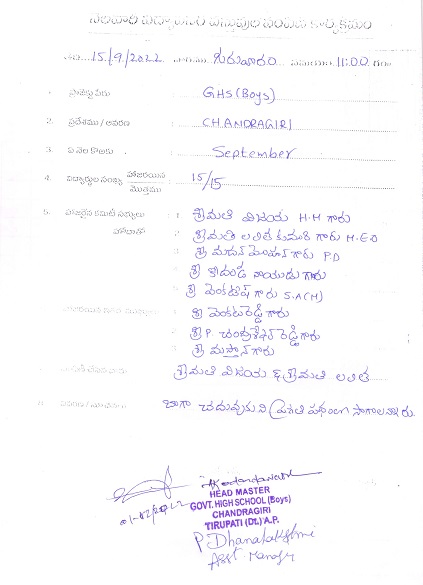 నెలవారీ విద్యా పరిస్థితుల పంపిణీ కార్యక్రమం
తేది...15/9/2022 వారము గురువారం సమయం 11:00 గం
1. GHS (Boys)
2. ప్రదేశము / ఆవరణ CHANDRAGIRI
3. ఏ నెల కొరకు September
4. విద్యార్థుల సంఖ్య హాజరయిన మొత్తము 15/15
5. హాజరైన కమిటీ సభ్యులు 1 శ్రీమతి విజయ H.M గారు
హోదా 2 శ్రీమతి లలిత కుమారి గారు M.E.O
3 శ్రీ మదన్ మోహన్ గారు P.D
శ్రీ కోదండ నాయుడు గారు
శ్రీ వెంకటేష్ గారు S.A(M)
శ్రీ వెంకటరెడ్డి గారు
శ్రీ P. చంద్రశేఖర్ రెడ్డి గారు
శ్రీ మస్తాన్ గారు
శ్రీమతి విజయ & శ్రీమతి లలిత
బాగా చదువుకుని ప్రగతి పథంలో సాగాలన్నారు.
HEAD MASTER
GOVT. HIGH SCHOOL (Boys)
CHANDRAGIRI
TIRUPATI (Dt.) A.P.
P Dhanalakshmi
Asst. Manager